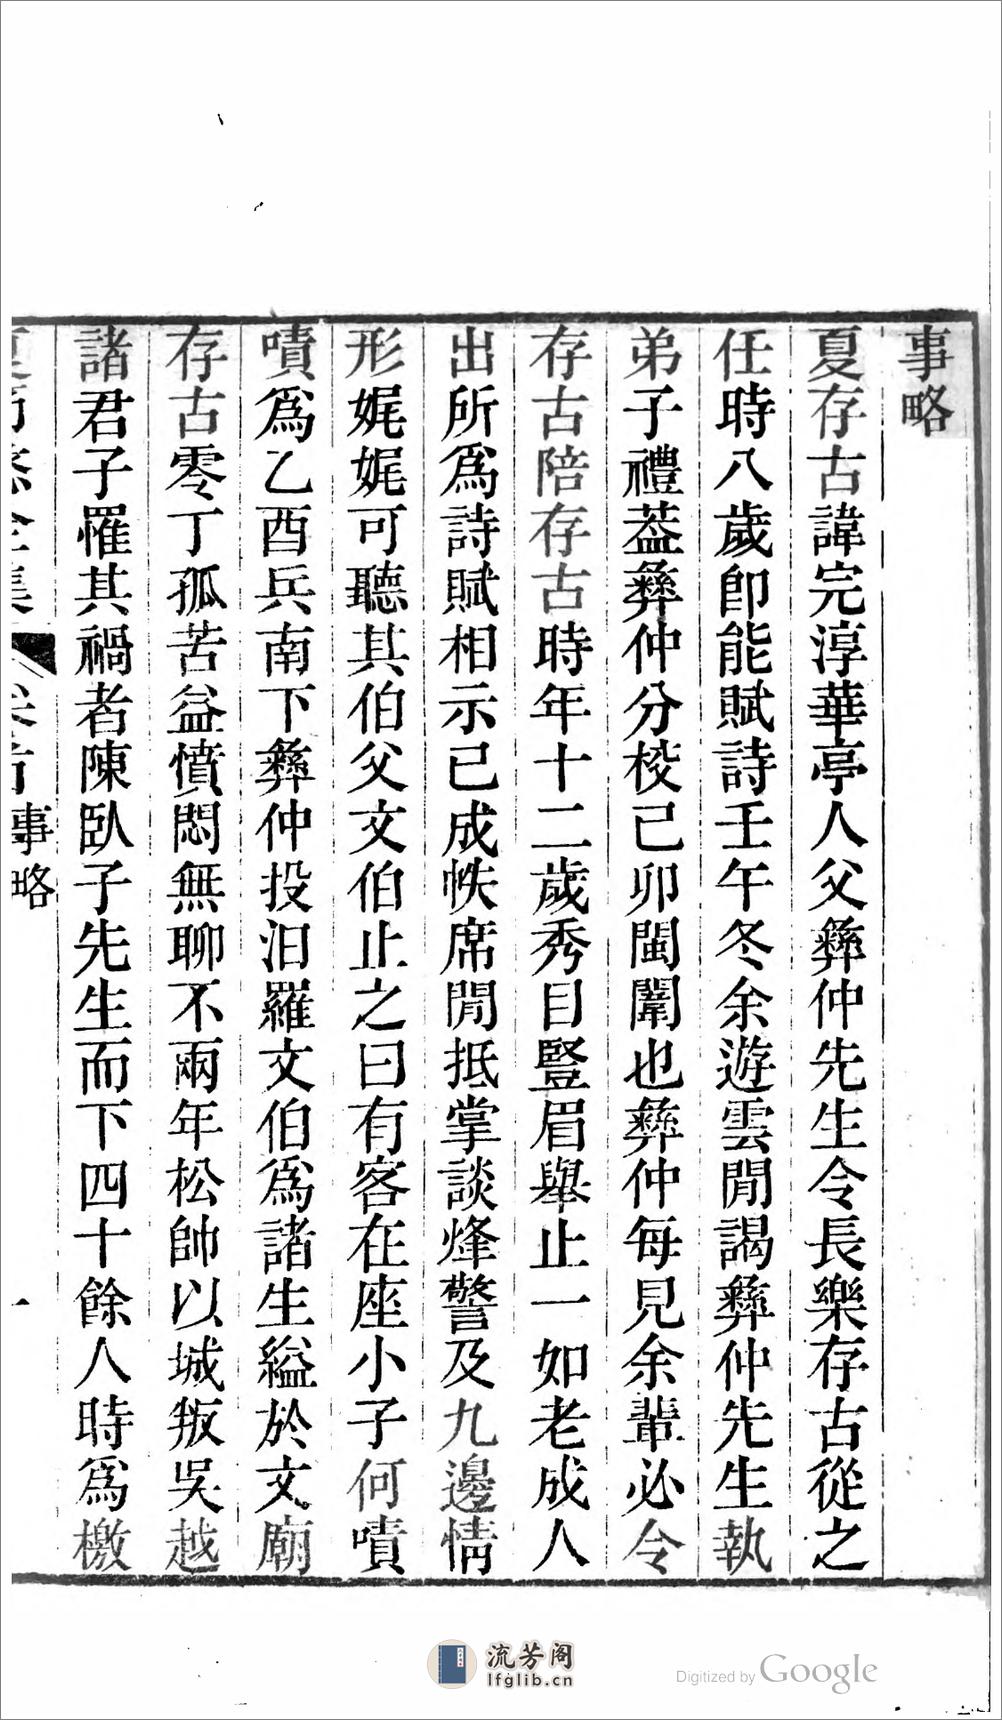 事略
夏存古諱完淳華亭人父彝仲先生令長樂存古從之
任時八歲卽能賦詩壬午冬余遊雲閒謁彝仲先生執
弟子禮葢彝仲分校己卯閩闈也彝仲每見余輩必令
存古陪存古時年十二歲秀目豎眉舉止一如老成人
出所爲詩賦相示已成帙席閒抵掌談烽警及九邊情
形娓娓可聽其伯父文伯止之曰有客在座小子何嘖
嘖爲乙酉兵南下彝仲投汨羅文伯爲諸生縊於文廟
存古零丁孤苦益憤悶無聊不兩年松帥以城叛吳越
諸君子罹其禍者陳臥子先生而下四十餘人時爲檄
夏節愍全集 卷首 事略 一
流芳阁
lfglib.cn
Digitized by Google